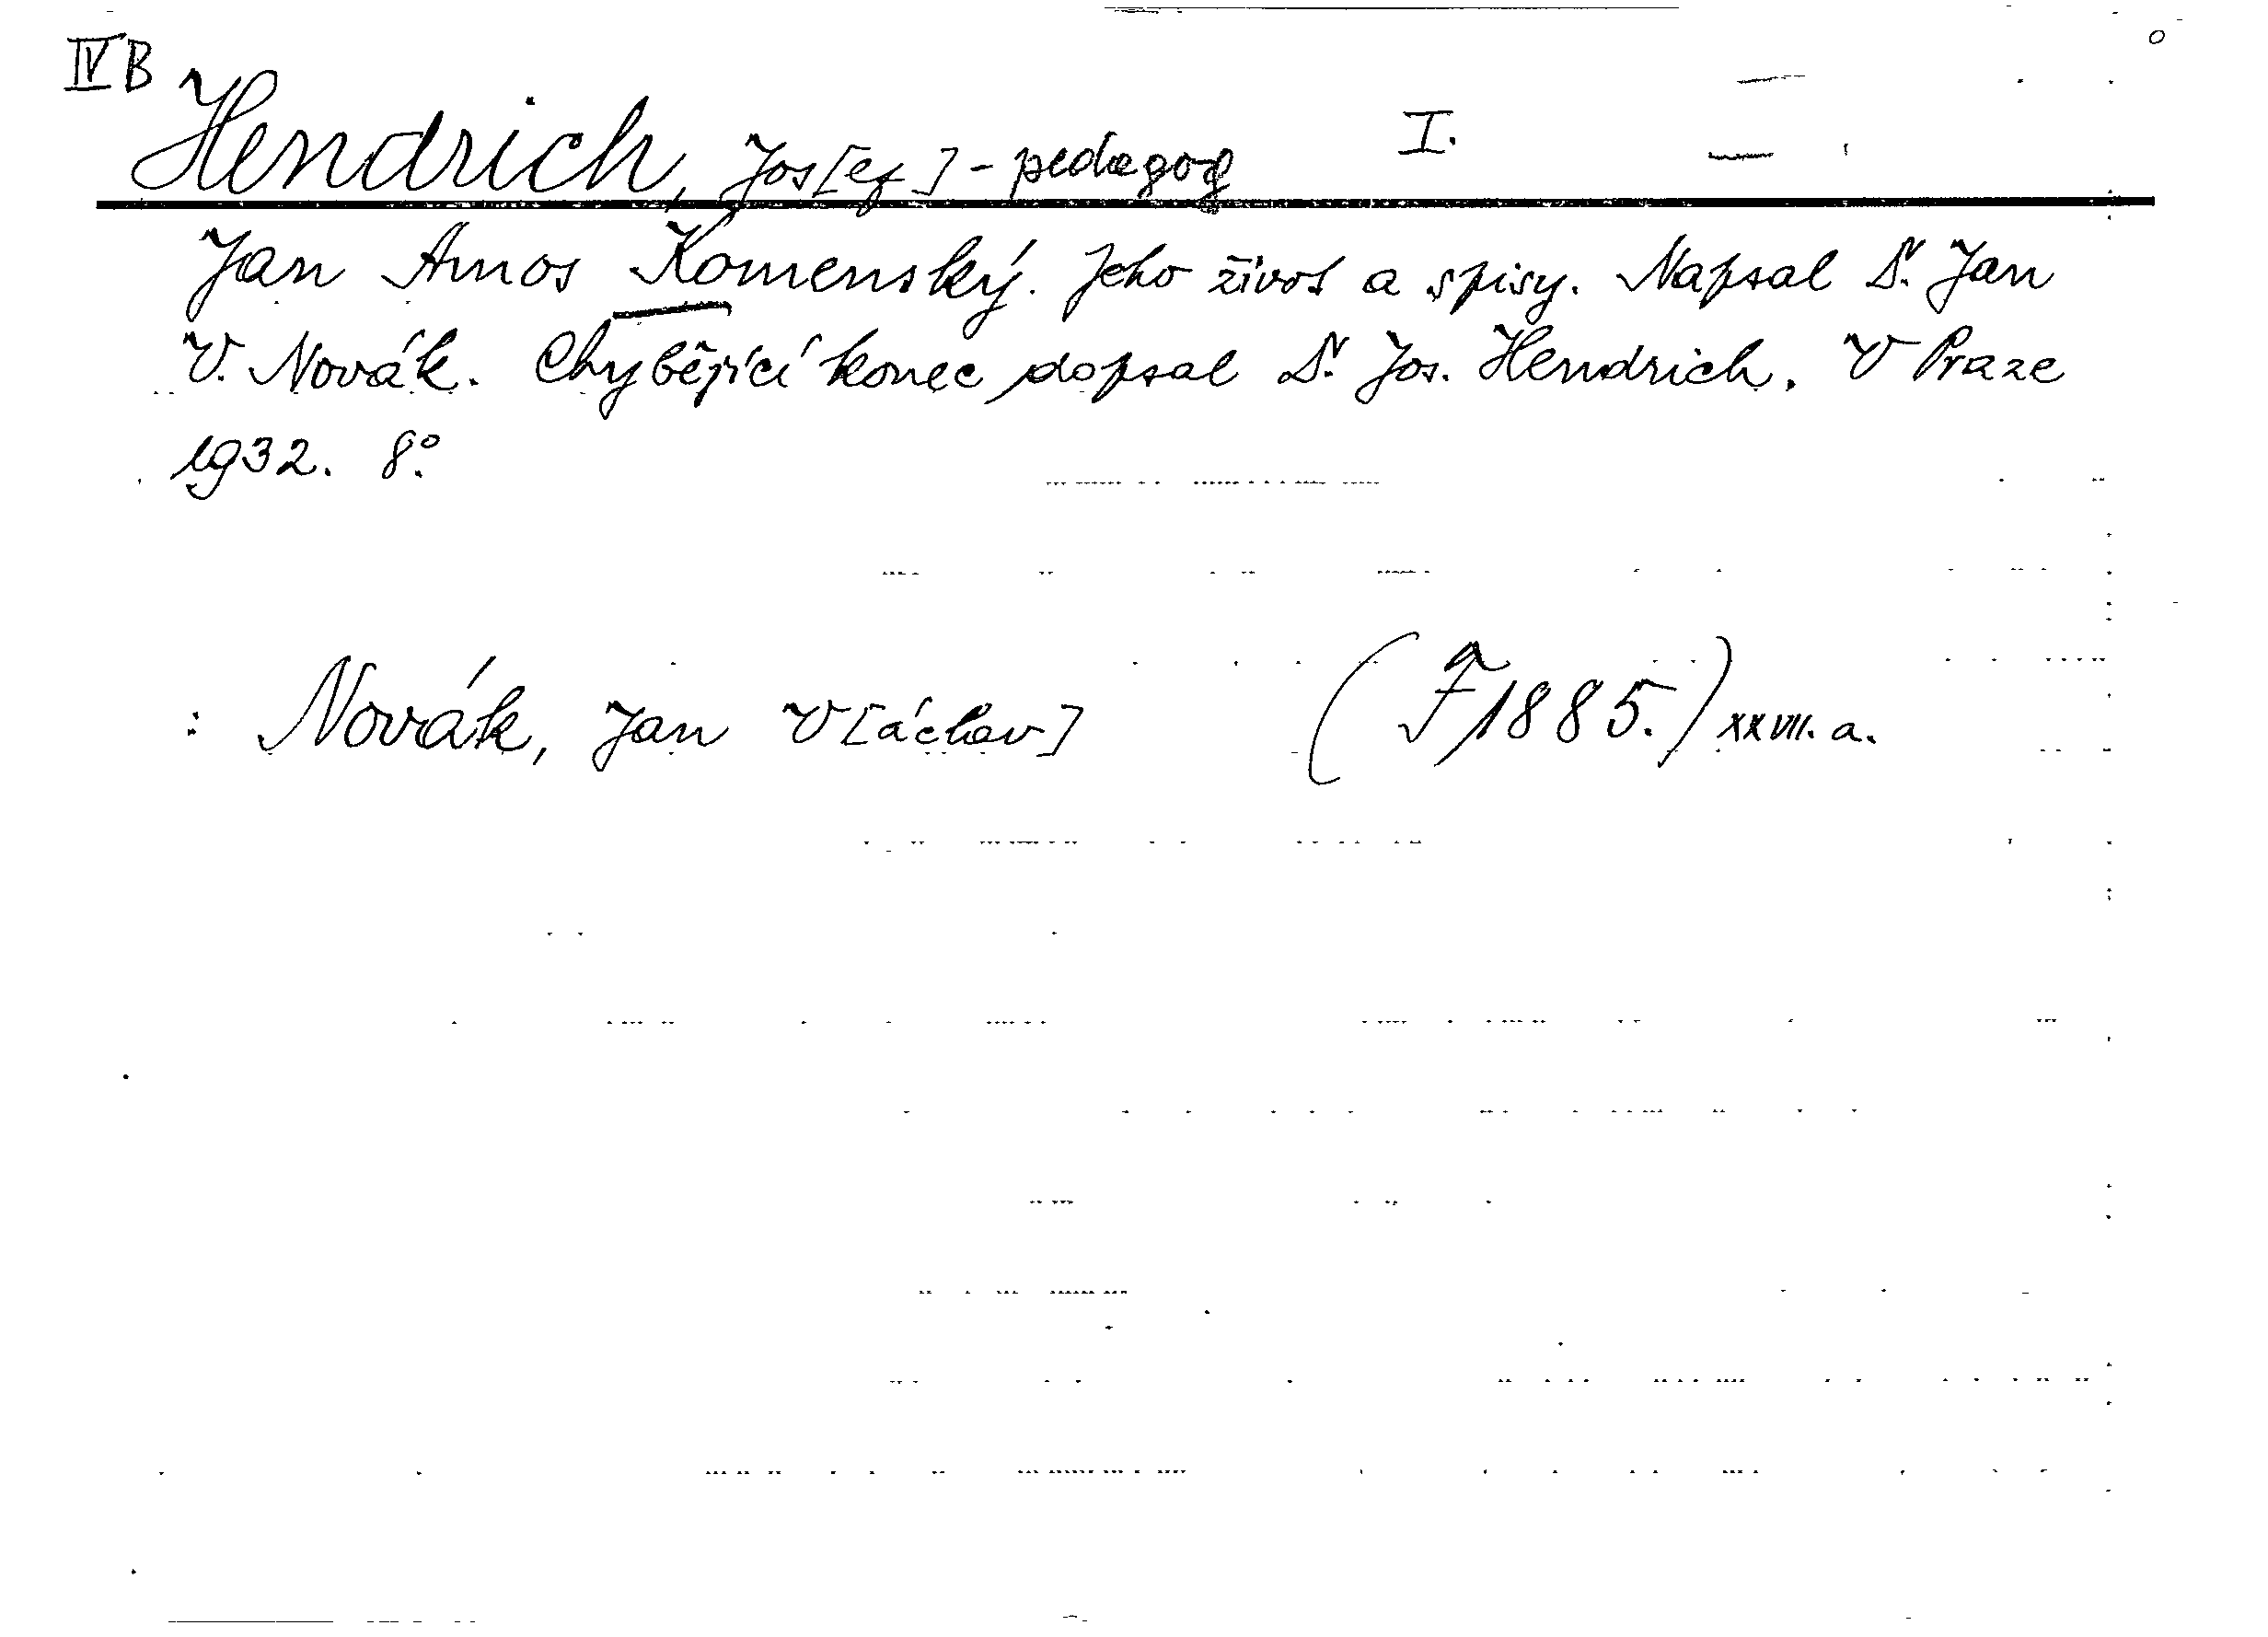 IV B
Hendrich, Jos[ef] - pedagog I.
Jan Amos Komenský. Jeho život a spisy. Napsal Dr. Jan
V. Novák. Chybějící konec dopsal Dr. Jos. Hendrich. V Praze
1932. 8°.
: Novák, Jan V[áclav] (F 1885.) XXVII. a.